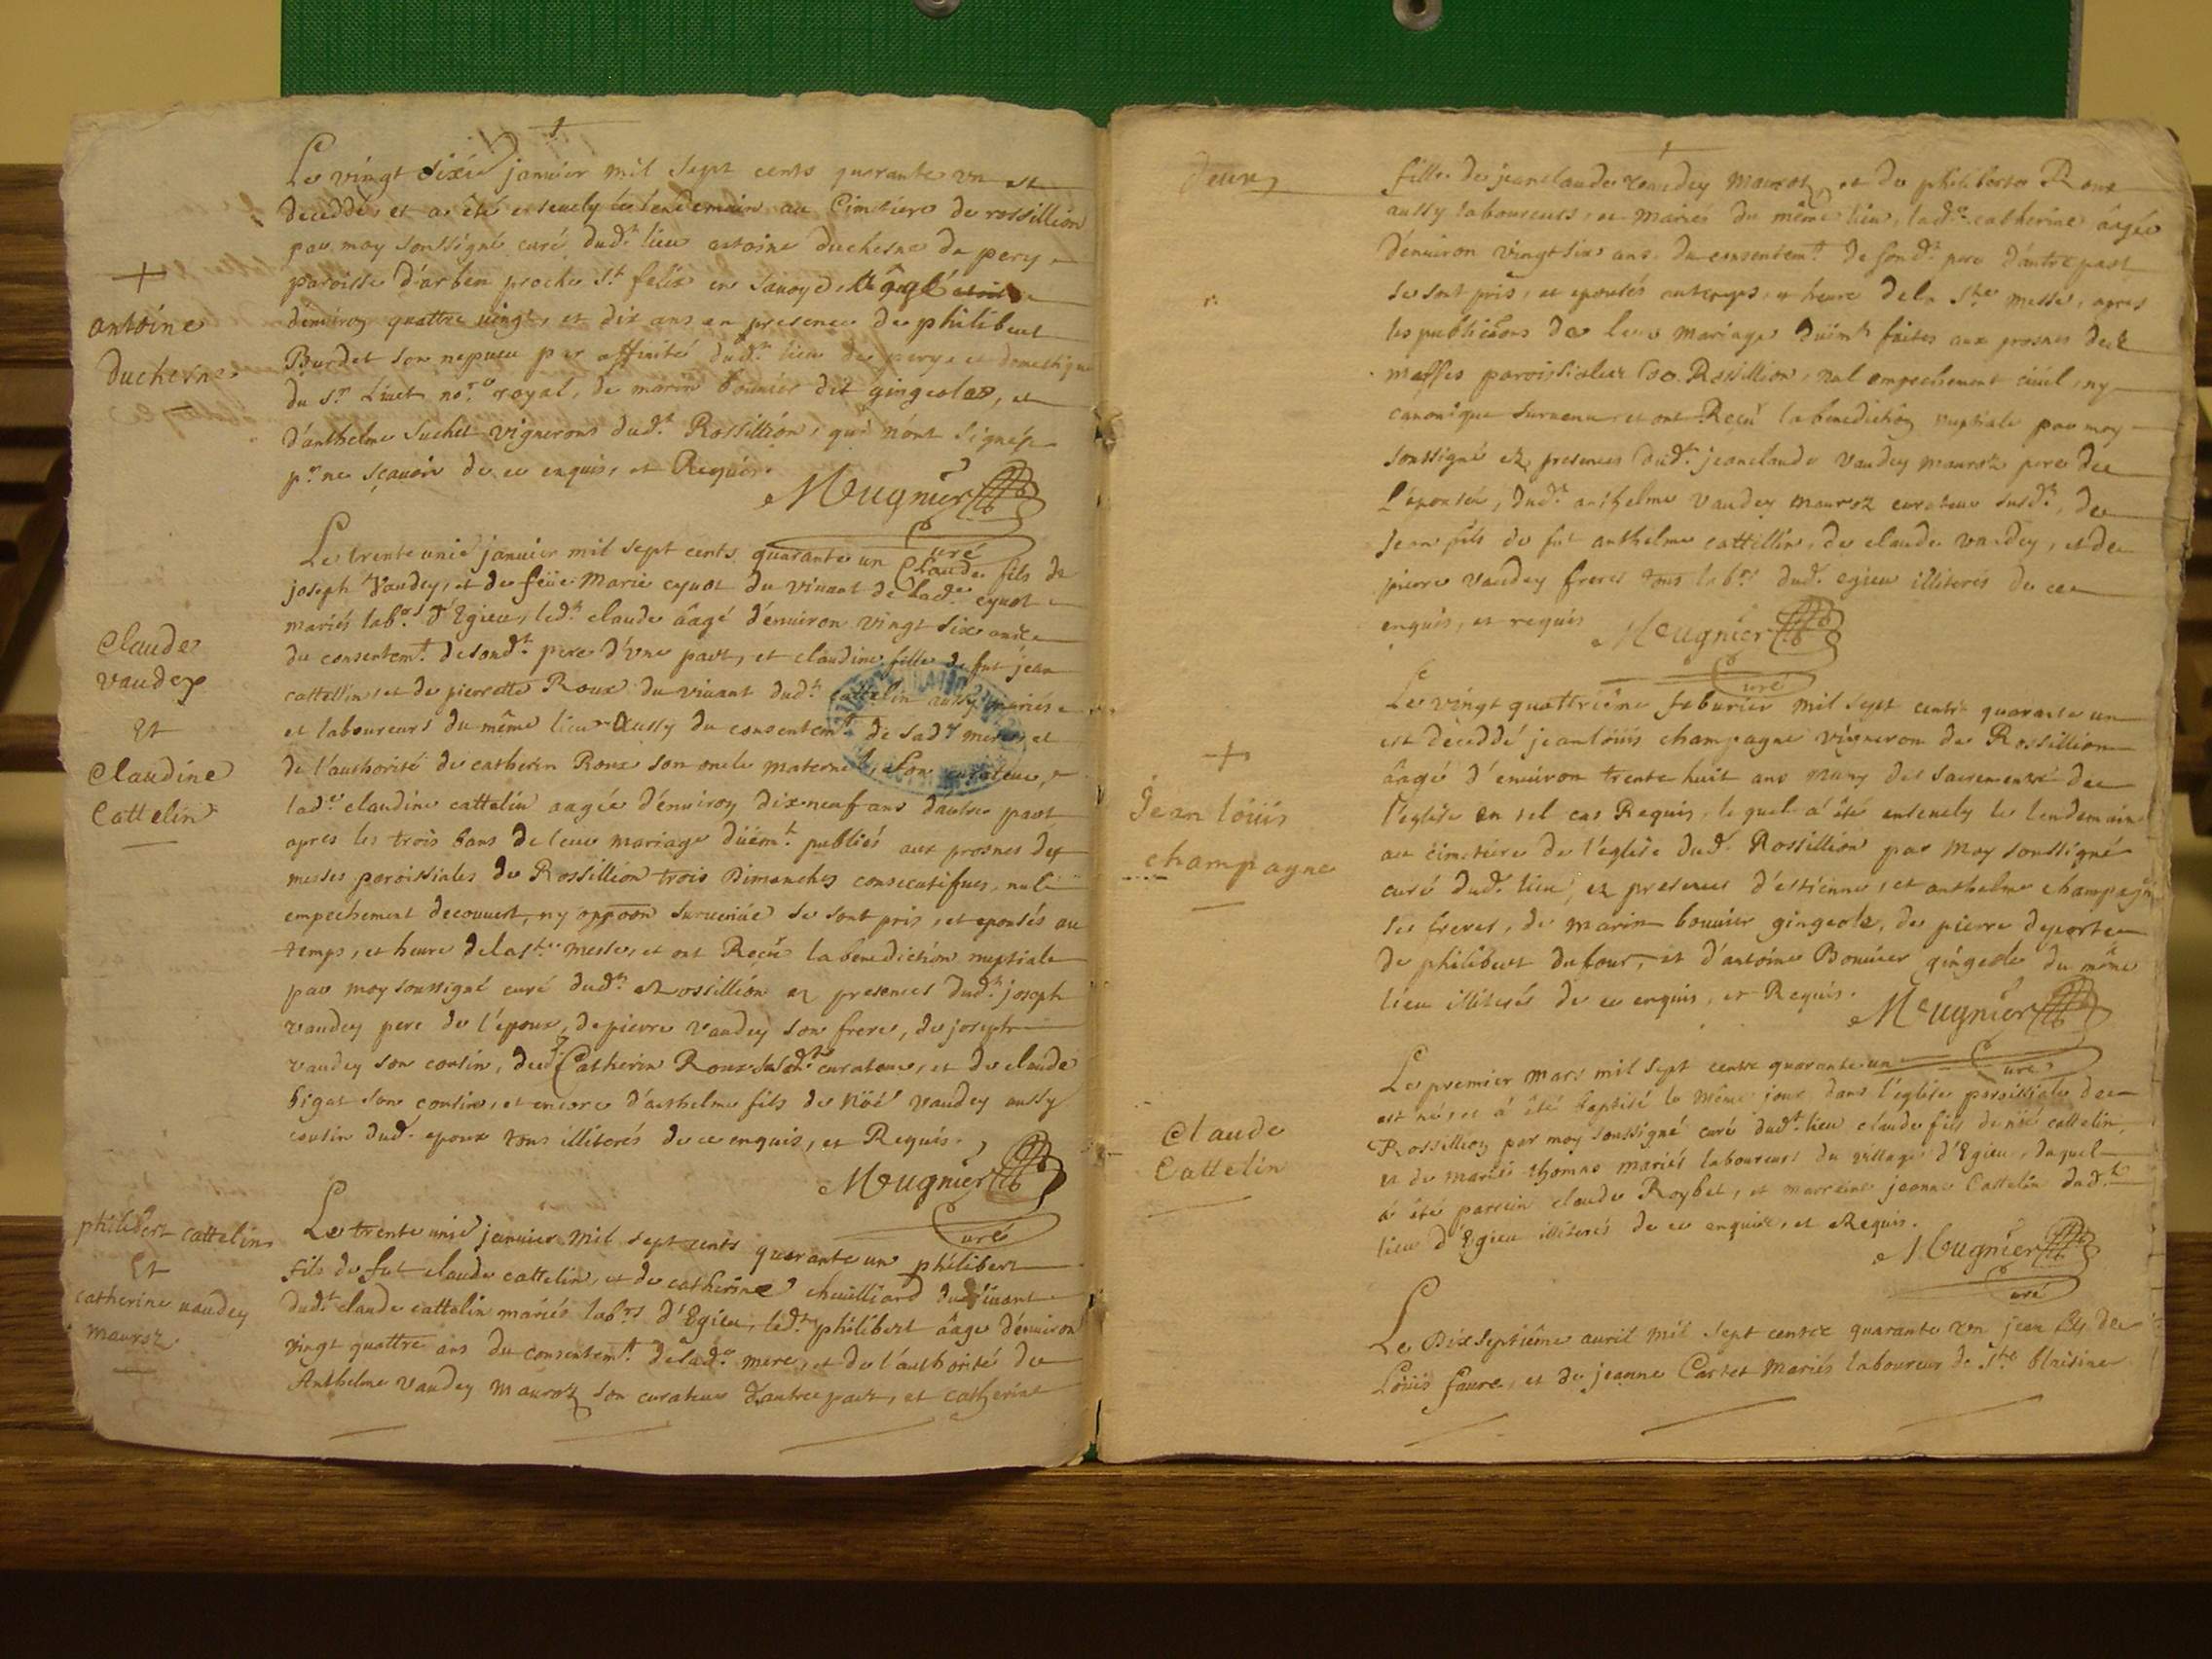 Le vingt sixié janvier mil sept cents quarante un est
deceddé, et a été ensevely le lendemain au Cimetiere de rossillion
par moy soussigné curé dud.t lieu antoine duchesne de pery
paroisse d'arben proche s.t felix en savoye, âgé
d'environ quattre vingt, et dix ans en presence de philibert
Burdet son nepueu par affinité dud.t lieu de pery, et domestique
du s.r Livet no.re royal, de marin bouvier dit gingeolaz, et
d'anthelme suchet vignerons dud.t Rossillion, qui n'ont signés
p.r ne sçavoir de ce enquis, et Requis.
Meugnier
Curé
+
antoine
duchesne
Le trente unié janvier mil sept cents quarante un Claude fils de
joseph Vaudey, et de feüe Marie cynot du vivant de lad.e cynot
mariés lab.rs d'Egieu, led.t claude âagé d'environ vingt six ans
du consentem.t de sond.t pere d'vne part, et claudine fille de fut jean
cattellin, et de pierrette Roux du vivant dud.t cattelin aussy mariés
et laboureurs du même lieu aussy du consentem.t de sad.e mere, et
de l'authorité de catherin Roux son oncle maternel, son curateur,
lad.e claudine cattelin aagée d'environ dixneuf ans d'autre part
apres les trois bans de leur mariage düem.t publiés aux prosnes des
messes paroissiales de Rossillion trois Dimanches consecutifues, nul
empechement decouvert, ny oppoon survenüe se sont pris, et epousés au
temps, et heure de la s.te messe, et ont Reçu la benediction nuptiale
par moy soussigné curé dud.t Rossillion ez presences dud.t joseph
vaudey pere de l'epoux, de pierre vaudey son frere, de joseph
vaudey son cousin, dud.t Catherin Roux susd.t curateur, et de claude
bigat son cousin, et encore d'anthelme fils de Noë vaudey aussy
cousin dud. epoux tous illiterés de ce enquis, et Requis.
Meugnier
Curé
Claude
vaudey
Et
Claudine
Cattelin
Le trente unié janvier mil sept cents quarante un philibert
fils de fut claude cattelin, et de catherine chevilliard du vivant
dud.t claude cattelin mariés lab.rs d'Egieu, led.t philibert âage d'environ
vingt quattre ans du consentem.t de lad.e mere, et de l'authorité de
Anthelme vaudey mauroz son curateur d'autre part, et catherine
philibert cattelin
Et
catherine vaudey
mauroz
deux
fille de jeanclaude vaudey mauroz, et de philiberte Roux
aussy laboureurs, et mariés du même lieu, lad.e catherine âgée
d'environ vingt six ans du consentem.t de sond.t pere d'autre part
se sont pris, et epousés au temps, et heure de la s.te messe, apres
les publicaons de leur mariage düem.t faites aux prosnes des
messes paroissiales de Rossillion, nul empechement civil, ny
canonique survenu, et ont Reçu la benediction nuptiale par moy
soussigné ez presences dud.t jeanclaude vaudey mauroz pere de
l'epousée, dud.t anthelme vaudey mauroz curateur susd.t, de
jean fils de fut anthelme cattellin, de claude vaudey, et de
pierre vaudey freres tous lab.rs dud. egieu illiterés de ce
enquis, et requis
Meugnier
Curé
Le vingt quattriéme feburier mil sept cents quarante un
est deceddé jean loüis champagne vigneron de Rossillion
âagé d'environ trente huit ans muny des sacrements de
l'eglise en tel cas Requis, lequel a été ensevely le lendemain
au cimetiere de l'église dud. Rossillion par moy soussigné
curé dud. lieu, ez presences d'estienne, et anthelme champagne
ses freres, de marin bouvier gingeolz, de pierre deporte
de philibert dufour, et d'antoine Bouvier gingeole du même
lieu illiterés de ce enquis, et Requis.
Meugnier
Curé
+
Jean loüis
champagne
Le premier mars mil sept cents quarante un
est né, et a été baptisé le même jour dans l'église paroissiale de
Rossillion par moy soussigné curé dud.t lieu claude fils de noé cattelin,
et de marie thomas mariés laboureurs du village d'Egieu, duquel
a été parrein claude Roybet, et marreine jeanne Cattelin dud.t
lieu d'Egieu illiterés de ce enquis, et Requis.
Meugnier
Curé
Claude
Cattelin
Le Dix septiéme avril mil sept cents quarante un jean fils de
Loüis faure, et de jeanne Cartet mariés laboureur de s.te blaisine